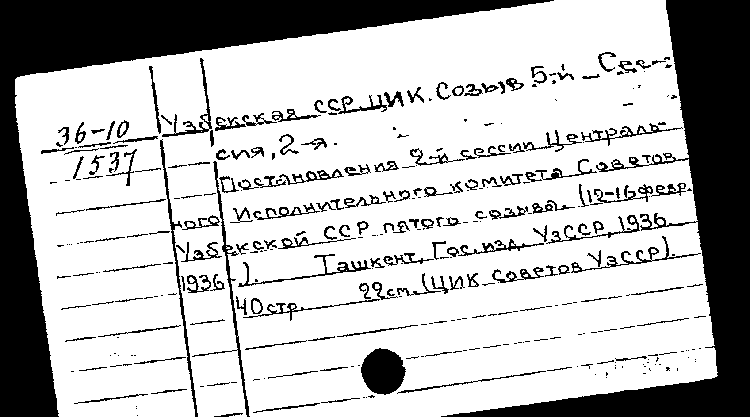 36-10
1537
Узбекская ССР. ЦИК. Созыв 5-й. Сес-
сия, 2-я.
Постановления 2-й сессии Централь-
ного Исполнительного комитета Советов
Узбекской ССР пятого созыва. (12-16 февр.
1936-).   Ташкент, Гос. изд. УзССР, 1936.
40 стр.   22см. (ЦИК советов УзССР).